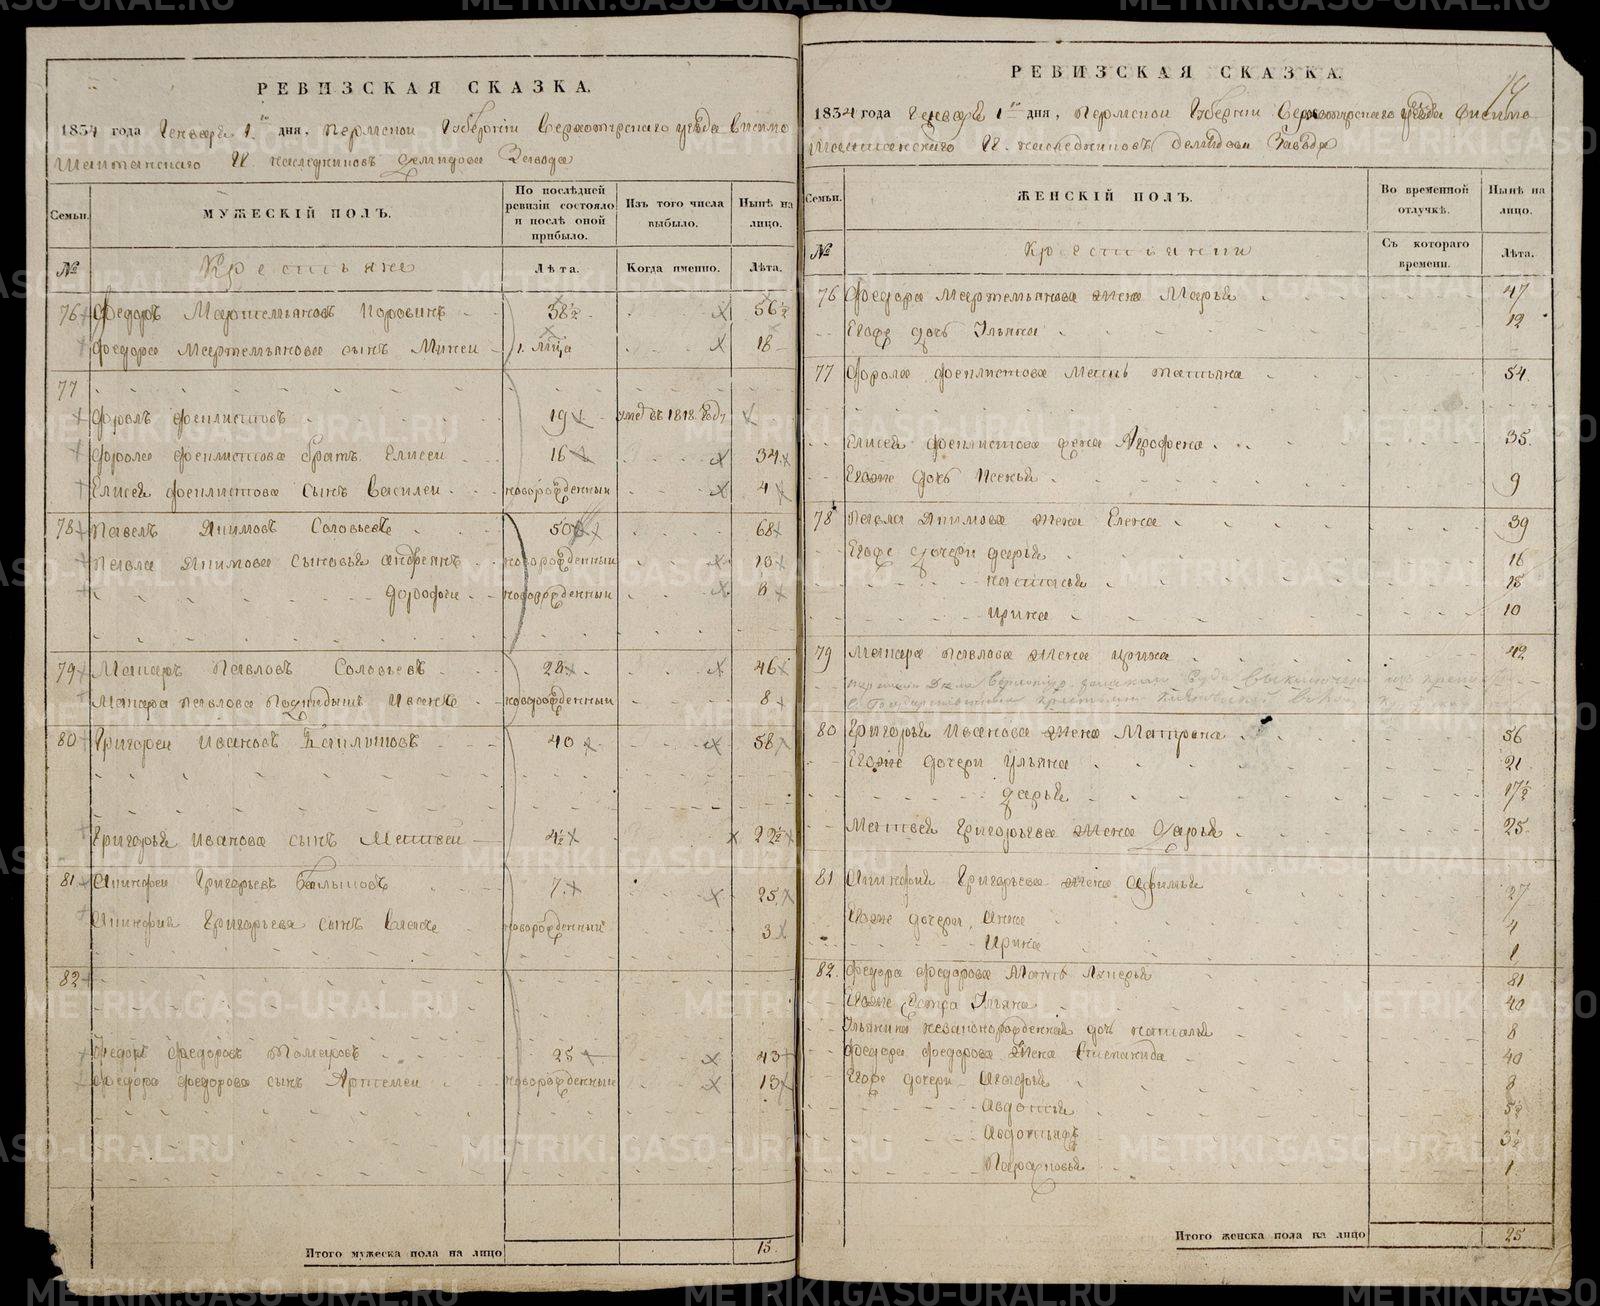 РЕВИЗСКАЯ СКАЗКА.
1834 года Генваря 1го дня, Пермской Губернии Верхотурского уезда Висимо
Шайтанского Гг. наследников Демидова Завода
Семьи.
МУЖЕСКІЙ ПОЛЪ.
По послѣдней ревизіи состояло и послѣ оной прибыло.
Изъ того числа выбыло.
Нынѣ на лицо.
№
Крестьяне
Лѣта.
Когда именно.
Лѣта.
76 Федоръ Мартемьяновъ 38½ 56½
Федора Мартемьянова сынъ Минеи 18
77
Фролъ Феклистовъ 19 умеръ въ 1818 году
Фрола Феклистова братъ Елисеи 16 34
Елисея Феклистова сынъ Василеи новорожденныи 4
78 Павелъ Якимовъ Соловьевъ 50 68
Павла Якимова сыновья Андреянъ новорожденныи 13
Дорофеи новорожденныи 8
79 Макаръ Павловъ Соловьевъ 28 46
Макара Павлова Иванъ новорожденныи 8
80 Григореи Ивановъ 40 58
Григорья Иванова сынъ Матвеи 4½ 22½
81 Акинфеи Григорьевъ 7 25
Акинфия Григорьева сынъ Власъ новорожденныи 3
82
Федоръ Федоровъ 25 43
Федора Федорова сынъ Артемеи новорожденныи 13
Итого мужеска пола на лицо 15
РЕВИЗСКАЯ СКАЗКА.
1834 года Генваря 1го дня, Пермской Губернии Верхотурского уезда Висимо
Шайтанского Гг. наследниковъ Демидова Завода
Семьи.
ЖЕНСКІЙ ПОЛЪ.
Во временной отлучкѣ.
Нынѣ на лицо.
№
Крестьянки
Съ котораго времени.
Лѣта.
76 Федора Мартемьянова жена Марья 47
Егоже дочь Ульяна 12
77 Фрола Феклистова мать Татьяна 54
Елисея Феклистова жена Аграфена 35
Егоже дочь Ксенья 9
78 Павла Якимова жена Елена 39
Егоже дочери Дарья 16
Настасья 13
Ирина 10
79 Макара Павлова жена Ирина 42
80 Григорья Иванова жена Матрена 56
Егоже дочери Ульяна 21
Дарья 17½
Матвея Григорьева жена Дарья 25
81 Акинфия Григорьева жена Афимья 27
Егоже дочери, Анна 4
Ирина 1
82. Федора Федорова мать Лукерья 81
Егоже сестра Ульяна 40
Ульянина незаконорожденная дочь Наталья 8
Федора Федорова жена Степанида 40
Егоже дочери Агафья 8
Авдотья 5½
3½
Парасковья 1
Итого женска пола на лицо 25